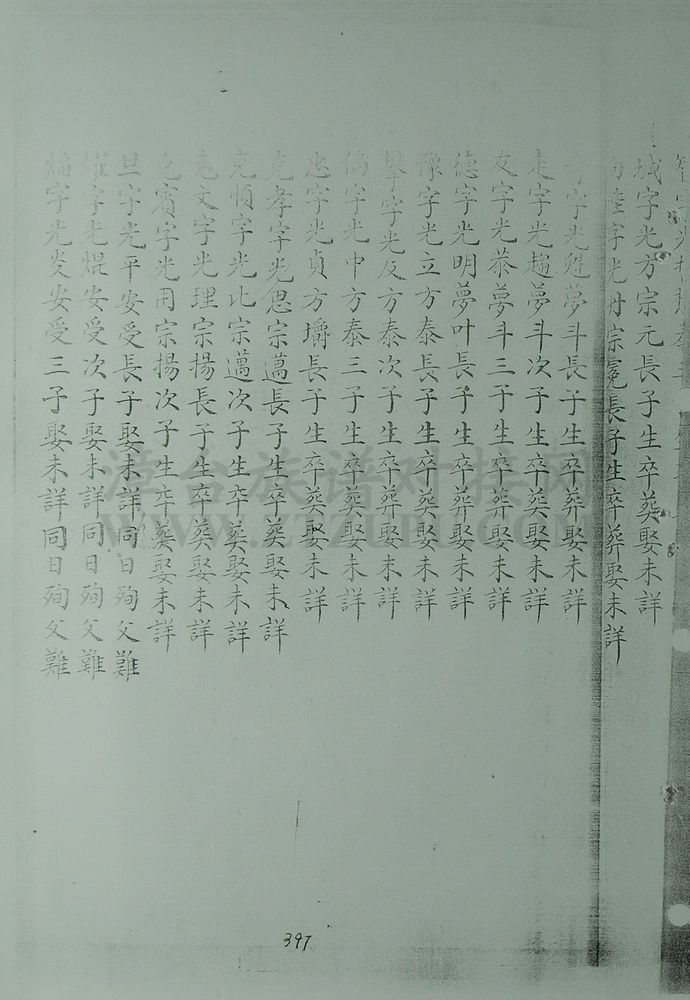 城字光方宗元長子生卒葬娶未詳
字光宗冕長子生卒葬娶未詳
字光魁夢斗長子生卒葬娶未詳
走字光趨夢斗次子生卒葬娶未詳
友字光恭夢斗三子生卒葬娶未詳
德字光明夢叶長子生卒葬娶未詳
豫字光立方泰長子生卒葬娶未詳
攀字光反方泰次子生卒葬娶未詳
偏字光中方泰三子生卒葬娶未詳
忠字光貞方壩長子生卒葬娶未詳
克孝字光思宗邁長子生卒葬娶未詳
克順字光比宗邁次子生卒葬娶未詳
克文字光理宗揚長子生卒葬娶未詳
克賓字光用宗揚次子生卒葬娶未詳
旦字光平安受長子娶未詳同日殉父難
耀字光焜安受次子娶未詳同日殉父難
煸字光炎安受三子娶未詳同日殉父難
397